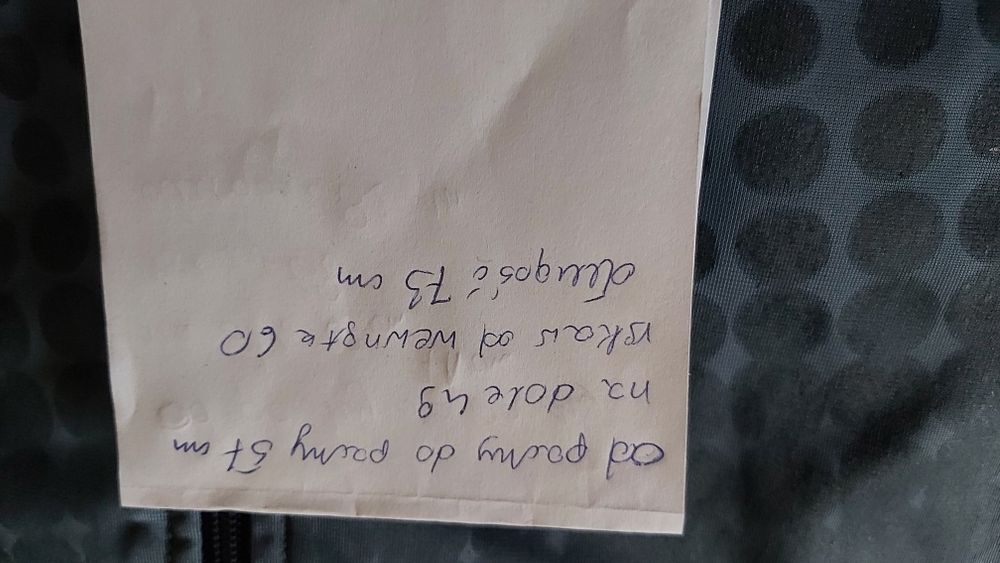 od pachy do pachy 57 cm
na dole 49
rękaw od wewnątz 60
długość 73 cm